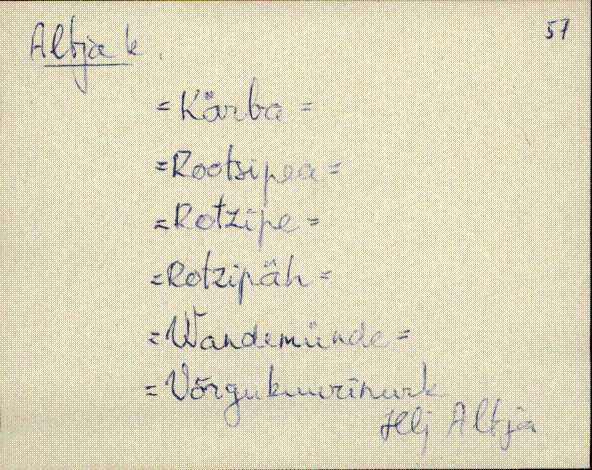 Altja k.
57
= Kärba =
= Rootsipea =
= Rotzipe =
= Rotzipäh =
= Wandemünde =
= Võrgukuurinurk
Hlj Altja